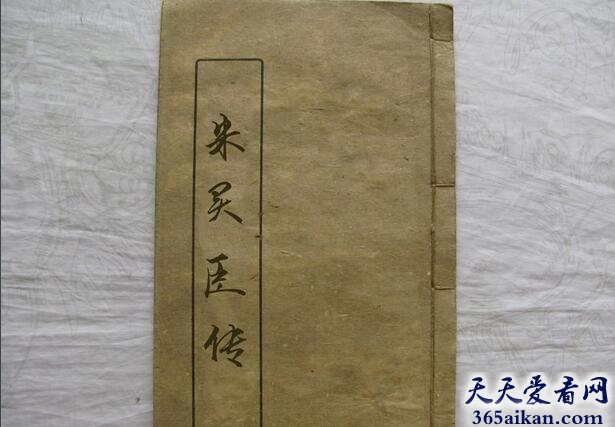 朱买臣传
天天爱看网
365aikan.com